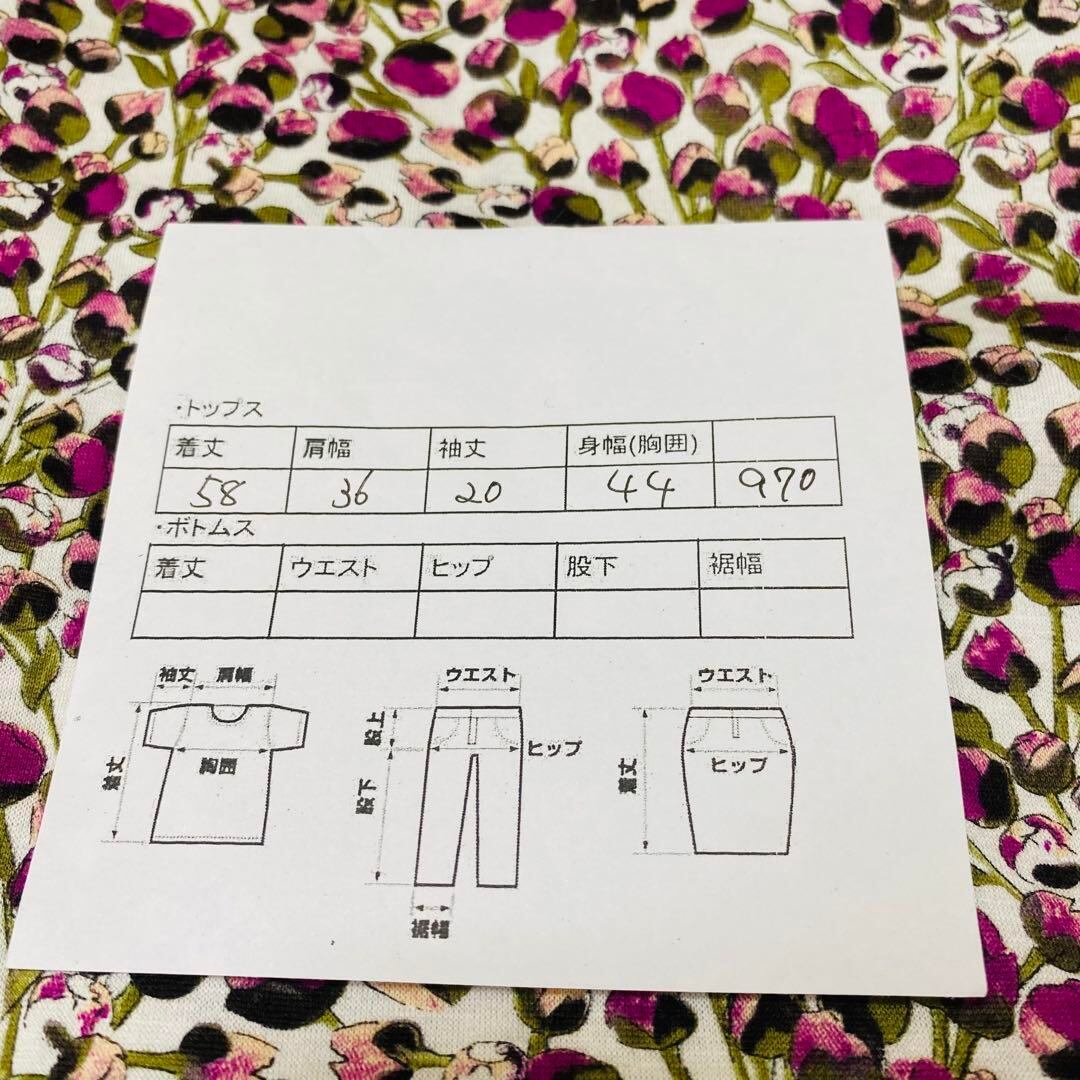 ・トップス
着丈 肩幅 袖丈 身幅(胸囲)
58 36 20 44 970
・ボトムス
着丈 ウエスト ヒップ 股下 裾幅
袖丈 肩幅 ウエスト ウエスト
着丈 胸囲 股上 ヒップ 股下 着丈 ヒップ
裾幅